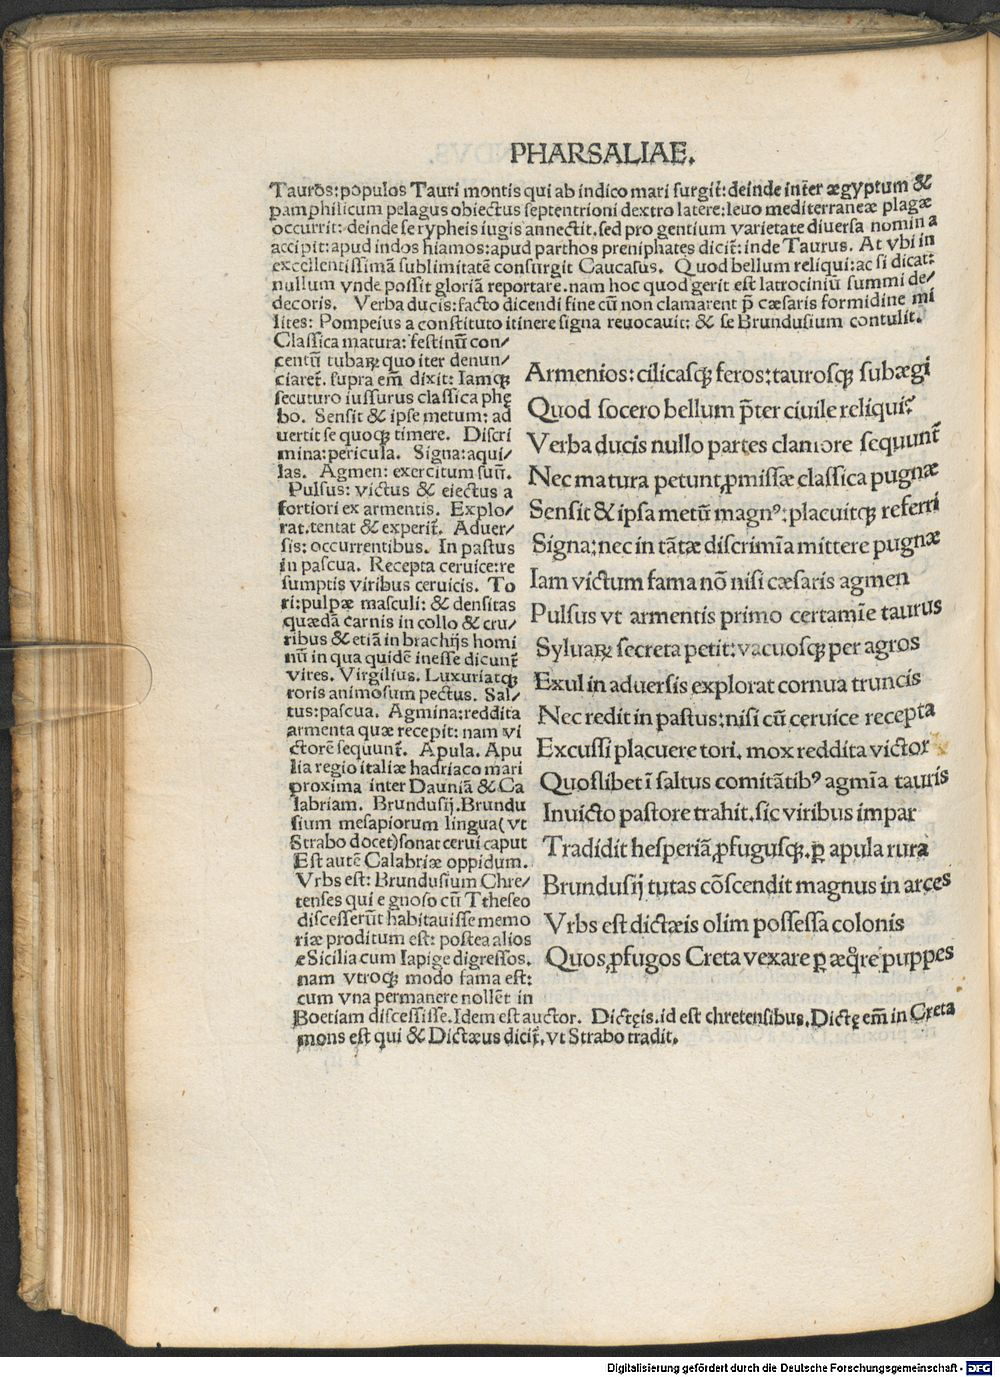 PHARSALIAE.
Tauros: populos Tauri montis qui ab indico mari surgit̃: deinde int̃er ægyptum &
pamphilicum pelagus obiectus septentrioni dextro latere: leuo mediterraneæ plagæ
occurrit: deinde se rypheis iugis annectit. sed pro gentium varietate diuersa nomina
accipit: apud indos hiamos: apud parthos preniphates dicit̃: inde Taurus. At vbi in
excellentissimã sublimitatẽ consurgit Caucasus. Quod bellum reliqui: ac si dicat:
nullum vnde possit gloriã reportare. nam hoc quod gerit est latrociniũ summi de/
decoris. Verba ducis: facto dicendi fine cũ non clamarent p̃ cæsaris formidine mi
lites: Pompeius a constituto itinere signa reuocauit: & se Brundusium contulit.
Classica matura: festinũ con/
centũ tubaꝝ quo iter denun/
ciaret. supra em̃ dixit: Iamqꝫ
secuturo iussurus classica phę
bo. Sensit & ipse metum: ad
uertit se quoqꝫ timere. Discri
mina: pericula. Signa: aqui/
las. Agmen: exercitum suũ.
Pulsus: victus & eiectus a
fortiori ex armentis. Explo/
rat. tentat & experit̃. Aduer/
sis: occurrentibus. In pastus
in pascua. Recepta ceruice: re
sumptis viribus ceruicis. To
ri: pulpæ masculi: & densitas
quædã carnis in collo & cru/
ribus & etiã in brachijs homi
nũ in qua quidẽ inesse dicunt̃
vires. Virgilius. Luxuriatqꝫ
toris animosum pectus. Sal/
tus: pascua. Agmina: reddita
armenta quæ recepit: nam vi
ctorẽ sequunt̃. Apula. Apu
lia regio italiæ hadriaco mari
proxima inter Dauniã & Ca
labriam. Brundusij. Brundu
sium mesapiorum lingua (vt
Strabo docet) sonat cerui caput
Est autẽ Calabriæ oppidum.
Vrbs est: Brundusium Chre/
tenses qui e gnoso cũ Ttheseo
discesserũt habitauisse memo
riæ proditum est: postea alios
e Sicilia cum Iapige digressos.
nam vtroqꝫ modo fama est:
cum vna permanere nollẽt in
Boetiam discessisse. Idem est auctor. Dictęis. id est chretensibus. Dictę em̃ in Creta
mons est qui & Dictæus dicit̃. vt Strabo tradit.
Armenios: cilicasqꝫ feros: taurosqꝫ subægi
Quod socero bellum p̃ter ciuile reliqui?
Verba ducis nullo partes clamore sequunt̃
Nec matura petunt ꝓmissæ classica pugnæ
Sensit & ipsa metũ magnꝰ: placuitqꝫ referri
Signa: nec in tãtæ discrimĩa mittere pugnæ
Iam victum fama nõ nisi cæsaris agmen
Pulsus vt armentis primo certamĩe taurus
Syluaꝝ secreta petit: vacuosqꝫ per agros
Exul in aduersis explorat cornua truncis
Nec redit in pastus: nisi cũ ceruice recepta
Excussi placuere tori. mox reddita victor
Quoslibet ĩ saltus comitãtibꝰ agmĩa tauris
Inuicto pastore trahit. sic viribus impar
Tradidit hesperiã, ꝓfugusqꝫ. ꝑ apula rura
Brundusij tutas cõscendit magnus in arces
Vrbs est dictæis olim possessa colonis
Quos ꝓfugos Creta vexare ꝑ æq̃re puppes
Digitalisierung gefördert durch die Deutsche Forschungsgemeinschaft - DFG